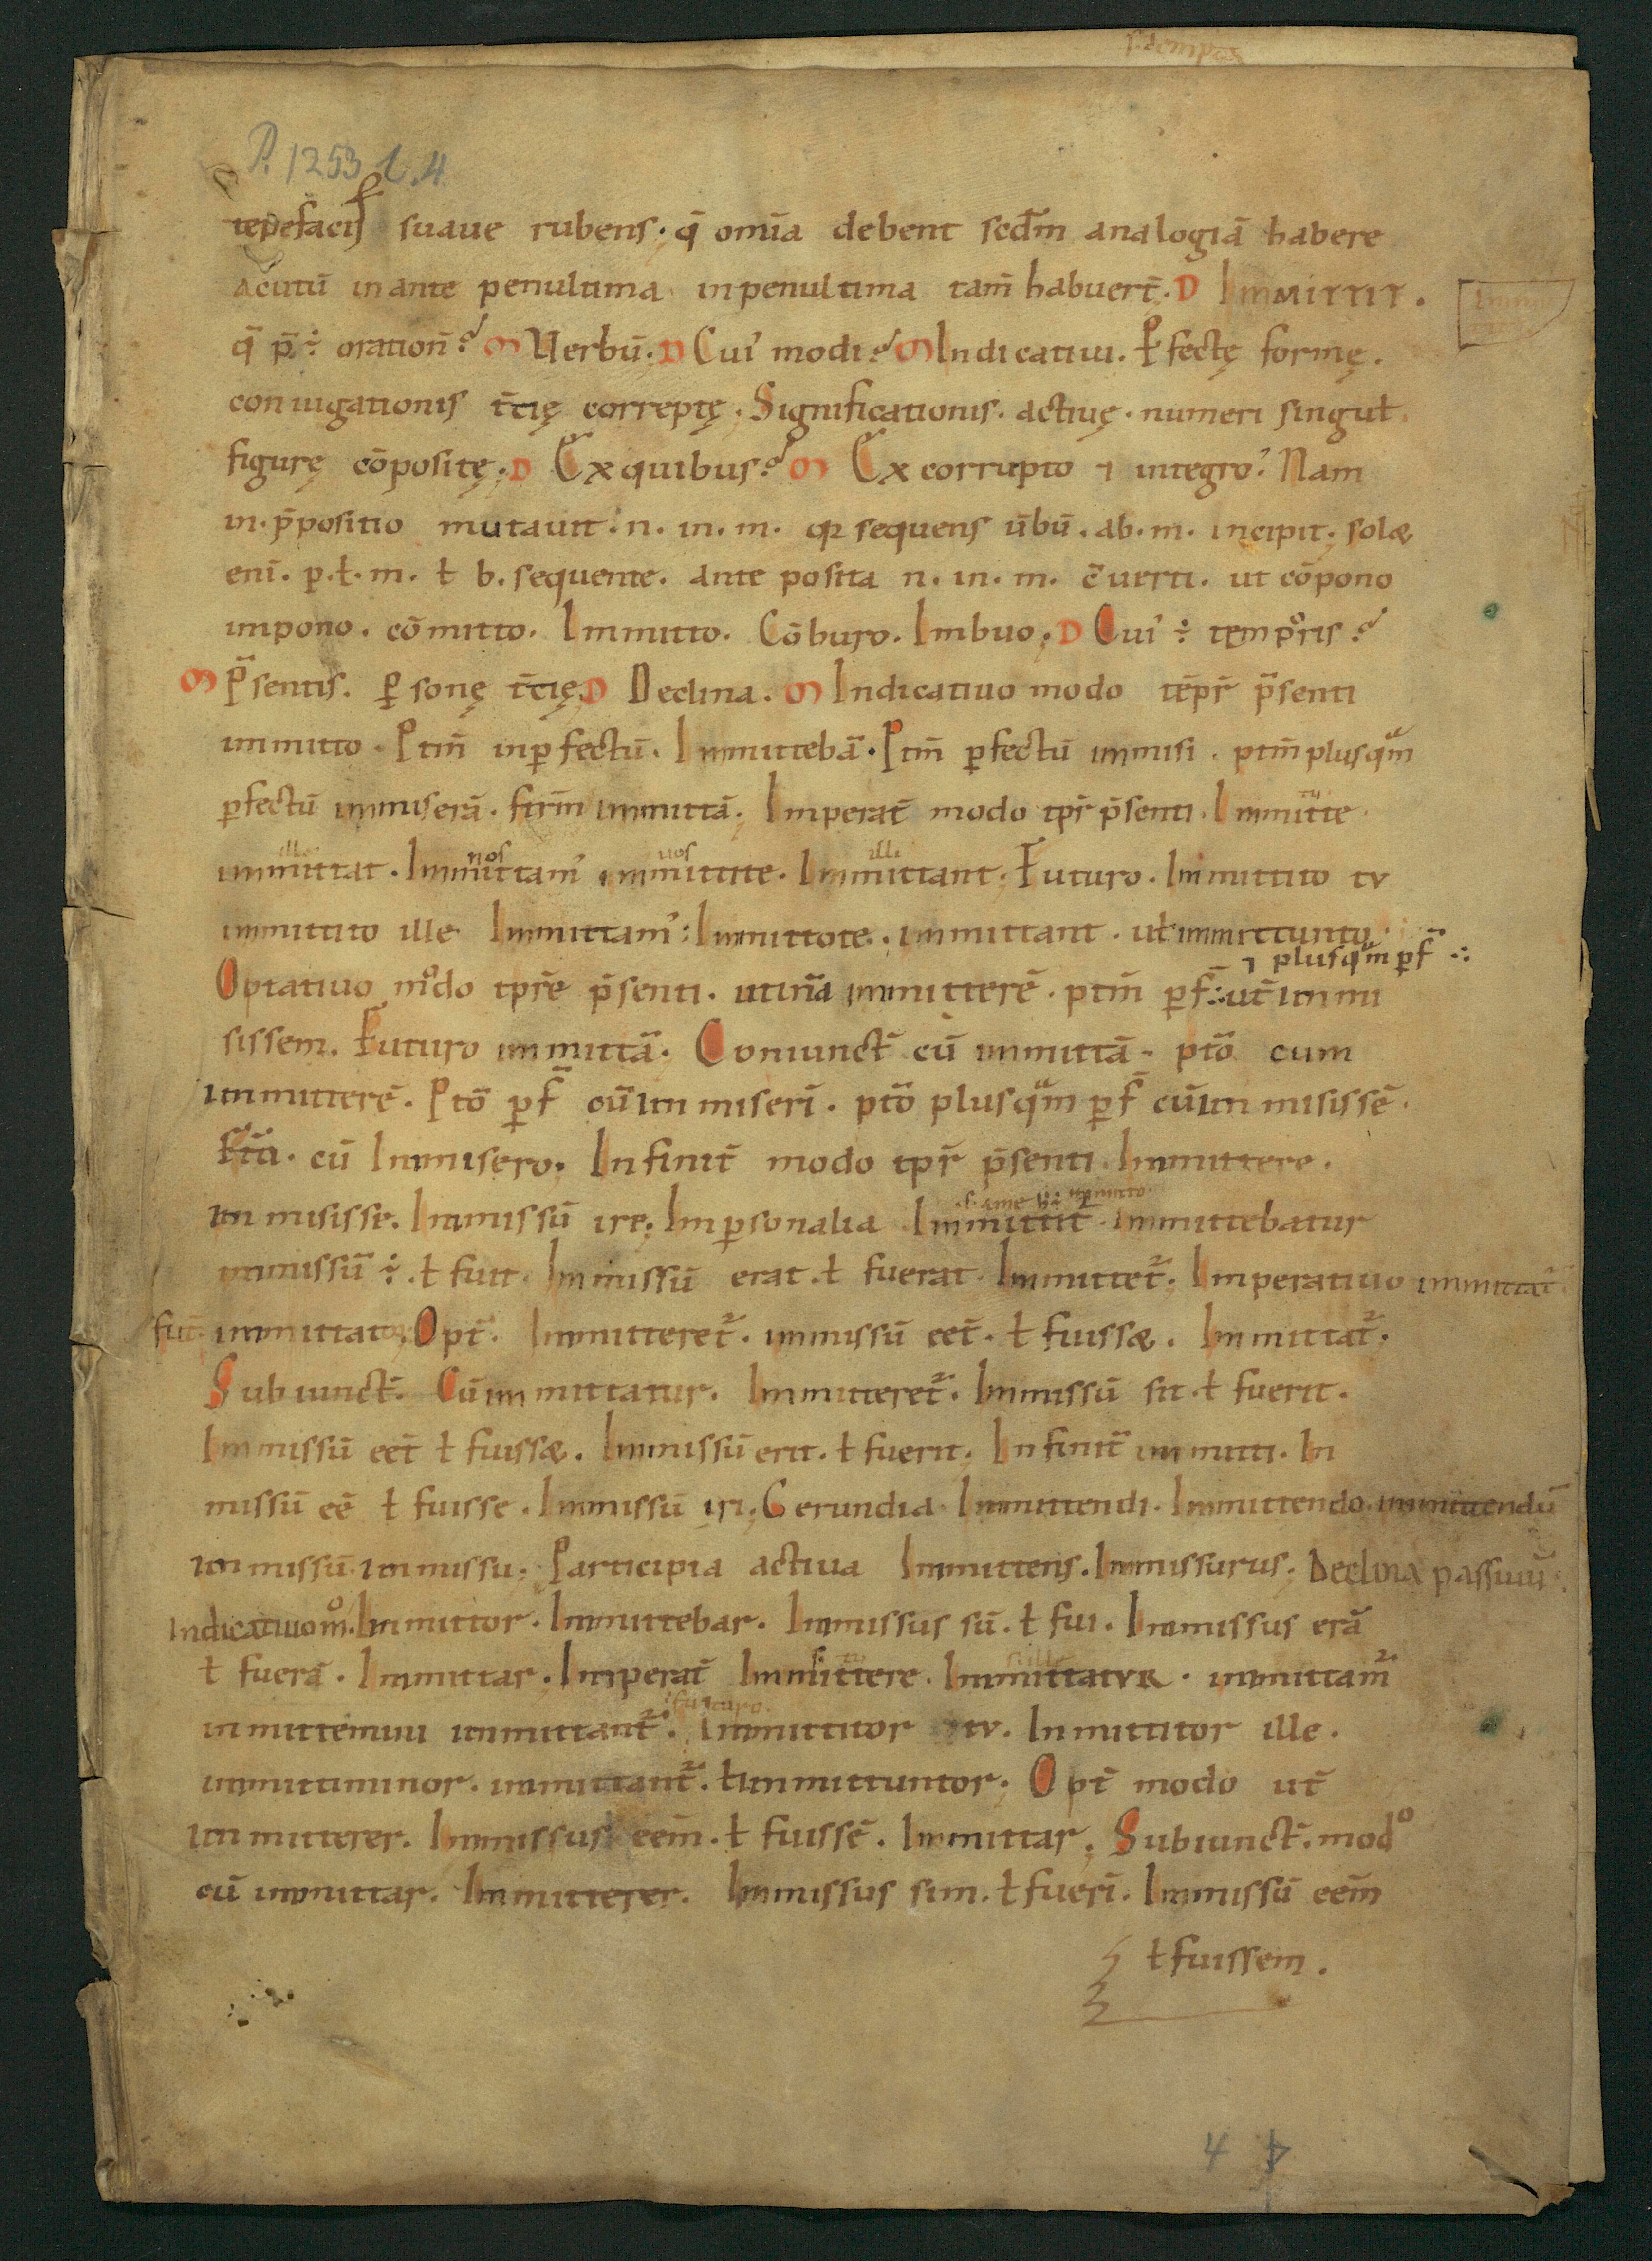 P. 1253 l. 4.
tepefacis suaue rubens. q̄ om̄ia debent scdm̄ analogiā habere
acutū in ante penultima in penultima tam̄ habuer̄t. D Immittit.
q̄ p̄ ÷ oration̄? M Uerbū. D Cui᾽ modi? M Indicatiui. ꝑfectę formę.
coniugationis t̄cię correptę. Significationis. actiuę. numeri singuł.
figurę cōpositę; D Ex quibus? M Ex corrupto ⁊ integro. Nam
in. p̄positio mutauit. n. in. m. qꝛ sequens ūbū. ab. m. incipit; solæ
eni᷄. p. ł. m. ł b. sequente. ante posita n. in. m. c̄uerti. ut cōpono
impono. cōmitto. Immitto. Cōburo. Imbuo; D Cui᾽ ÷ temporis?
M P̄sentis. ꝑsonę t̄cię. D Declina. M Indicatiuo modo tēpr̄ p̄senti
immitto. Ptm̄ inꝑfectū. Immittebā. Ptm̄ ꝑfectū immisi. ptm̄ plusqᵃm
ꝑfectū immiserā. futm̄ immittā; Imperat̄ modo tpr̄ p̄senti. Immitte tu
immittat ille. Immittam᾽ nos immittite uos. Immittant illi. Futuro. Immittito tv
immittito ille Immittam᾽: Immittote. immittant. uł immittunto.
⁊ plusqᵃm ꝑf̄ ∴
Optatiuo modo tpr̄e p̄senti. utinā immitterē. ptm̄ ꝑf̄ ∴ ut̄ immi
sissem. Futuro immittā. Coniunct̄ cū immittā. ptō cum
immitterē. Ptō ꝑf̄ cū immiseri᷄. ptō plusqᵃm ꝑf̄ cū immisissē.
cū Immisero. Infinit̄ modo tpr̄ p̄senti Immittere.
immisisse. Immissū ire; Imꝑsonalia Immittit᷑. immittebatur
immissū ÷. ł fuit. Immissū erat. ł fuerat. Immittet᷑. Imperatiuo immittat᷑
fut̄. immittator. Opt̄. Immitteret᷑. immissū eet̄. ł fuissæ. Immittat᷑.
Subiunct̄. Cū immittatur. Immitteret᷑. Immissū sit. ł fuerit.
Immissū eet̄ ł fuissæ. Immissū erit. ł fuerit. Infinit̄ immitti. Im
missū eē ł fuisse. Immissū iri; Gerundia Immittendi. Immittendo. immittendū
immissū. immissu; Participia actiua Immittens. Immissurus; Declina passiuū.
Indicatiuo mº. Immittor. Immittebar. Immissus sū. ł fui. Immissus erā
ł fuerā. Immittar. Imperat̄ Immittere tu. Immittatvr ille. immittam᷑
immittemini immittant᷑. futuro. Immittitor tv. Immittitor ille.
immittiminor. immittant᷑. ł immittuntor. Opt̄ modo ut̄
immitterer. Immissus eem̄. ł fuissē. Immittar; Subiunct̄. modº
cū immittar. Immitterer. Immissus sim. ł fueri᷄. Immissū eem̄
ł fuissem.
4